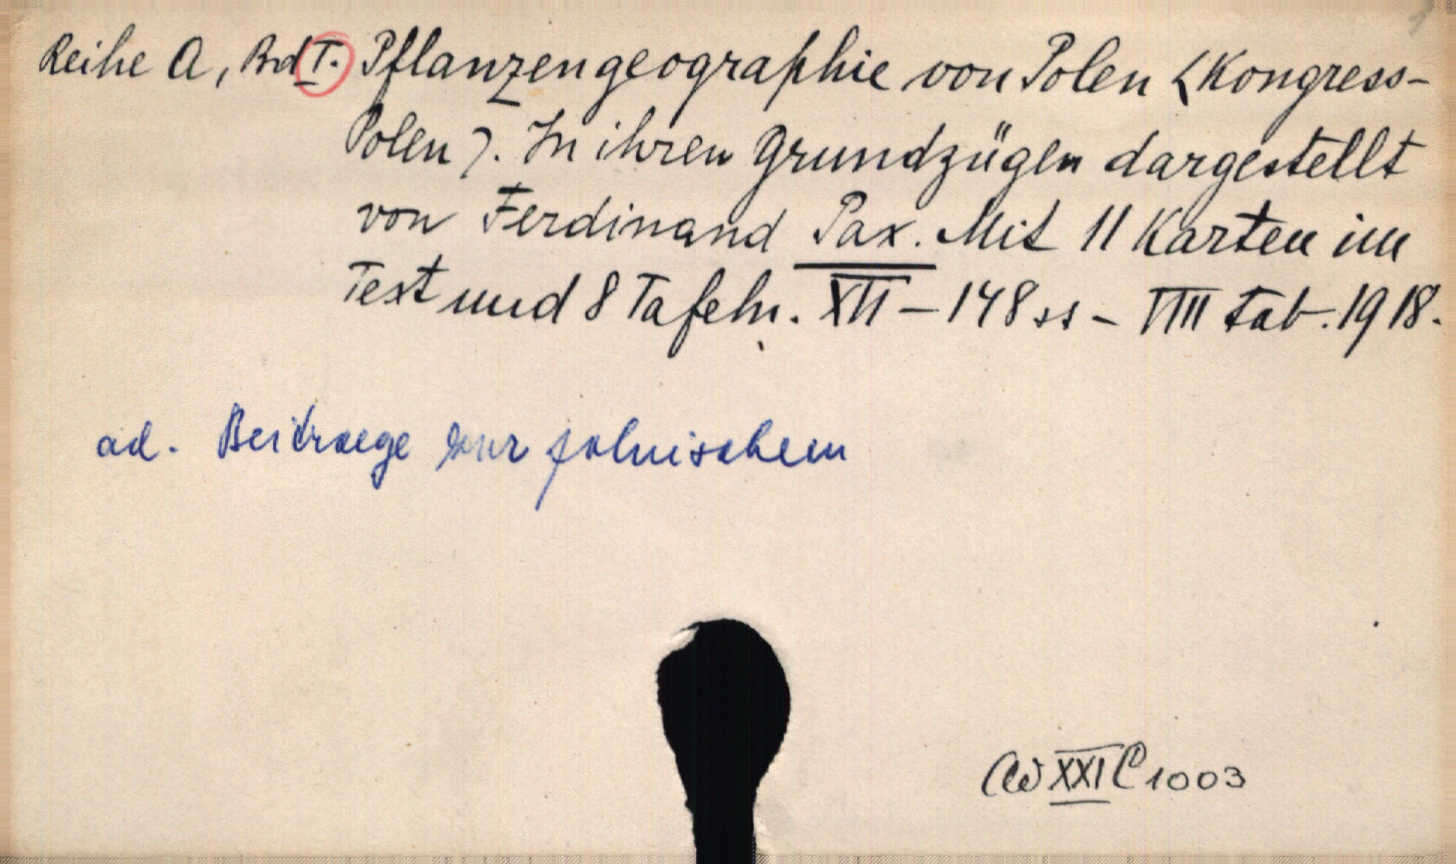 Reihe A, Bd I. Pflanzengeographie von Polen (Kongress-
Polen). In ihren Grundzügen dargestellt
von Ferdinand Pax. Mit 11 Karten im
Text und 8 Tafeln. XII – 148 ss – VIII tab. 1918.
ad. Beitraege zur polnischem
XXI C 1003